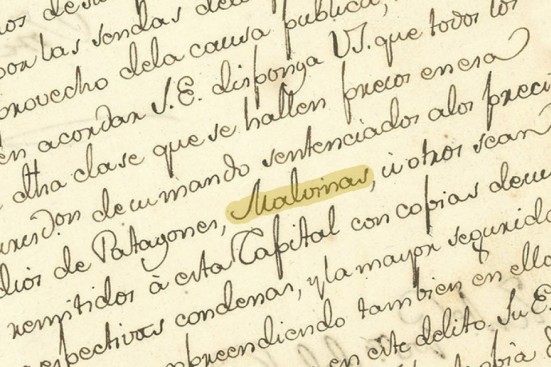 por las sendas dela causa publica,
provecho dela causa publica,
en acordar S.E. disponga VS. que todos los
dha clase que se hallen presos en esa
de su mando sentenciados alos presi
dios de Patagones, Malvinas, ù otros sean
remitidos à esta Capital con copias de su
respectivas condenas, y la mayor segurida
aprendiendo tambien en ello
en este delito. Su E.